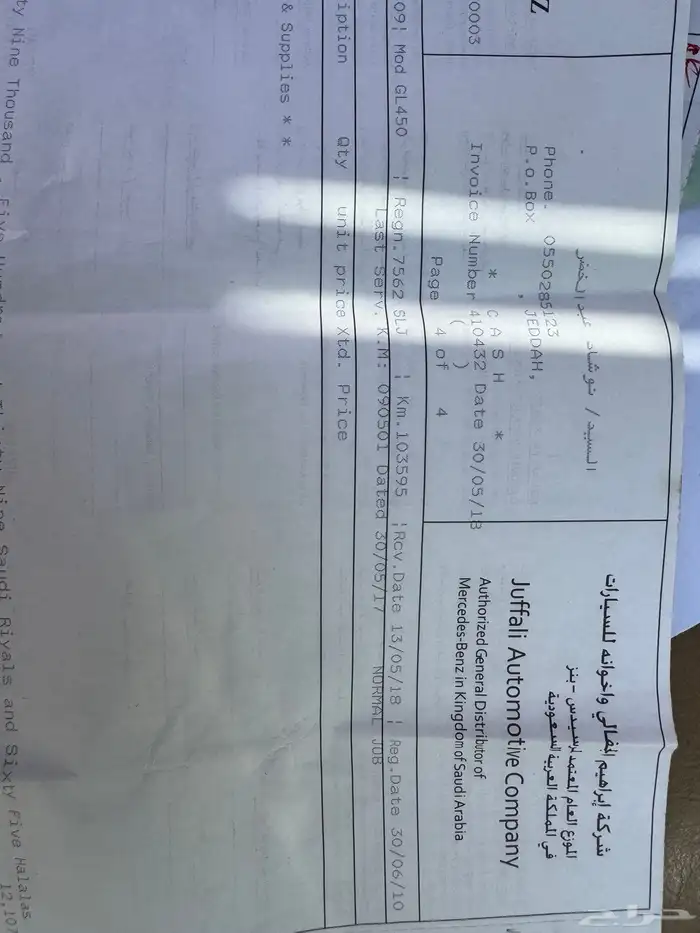 Z
السيد / نوشاد عبدالخضر
Phone. 0550285123
P.O.Box , JEDDAH,
* C A S H *
0003 Invoice Number 410432 Date 30/05/18
( )
Page 4 of 4
شركة إبراهيم الجفالي واخوانه للسيارات
الموزع العام المعتمد لمرسيدس - بنز
في المملكة العربية السعودية
Juffali Automotive Company
Authorized General Distributor of
Mercedes-Benz in Kingdom of Saudi Arabia
09¦ Mod GL450 ¦ Regn.7562 SLJ ¦ Km.103595 ¦Rcv.Date 13/05/18 ¦ Reg.Date 30/06/10
Last Serv. K.M: 090501 Dated 30/05/17 NORMAL JOB
iption Qty unit price Xtd. Price
& Supplies * *
ty Nine Thousand , Five Hundred Thirty Nine Saudi Riyals and Sixty Five Halalas
12,107
حراج